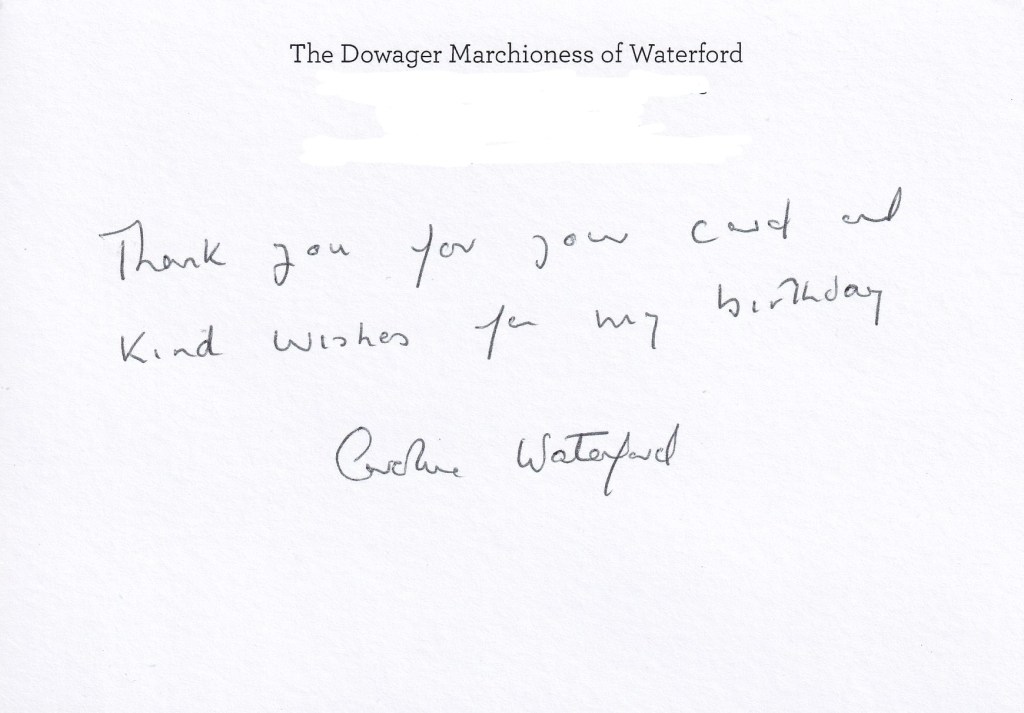 The Dowager Marchioness of Waterford
Thank you for your card and
Kind wishes for my birthday
Caroline Waterford